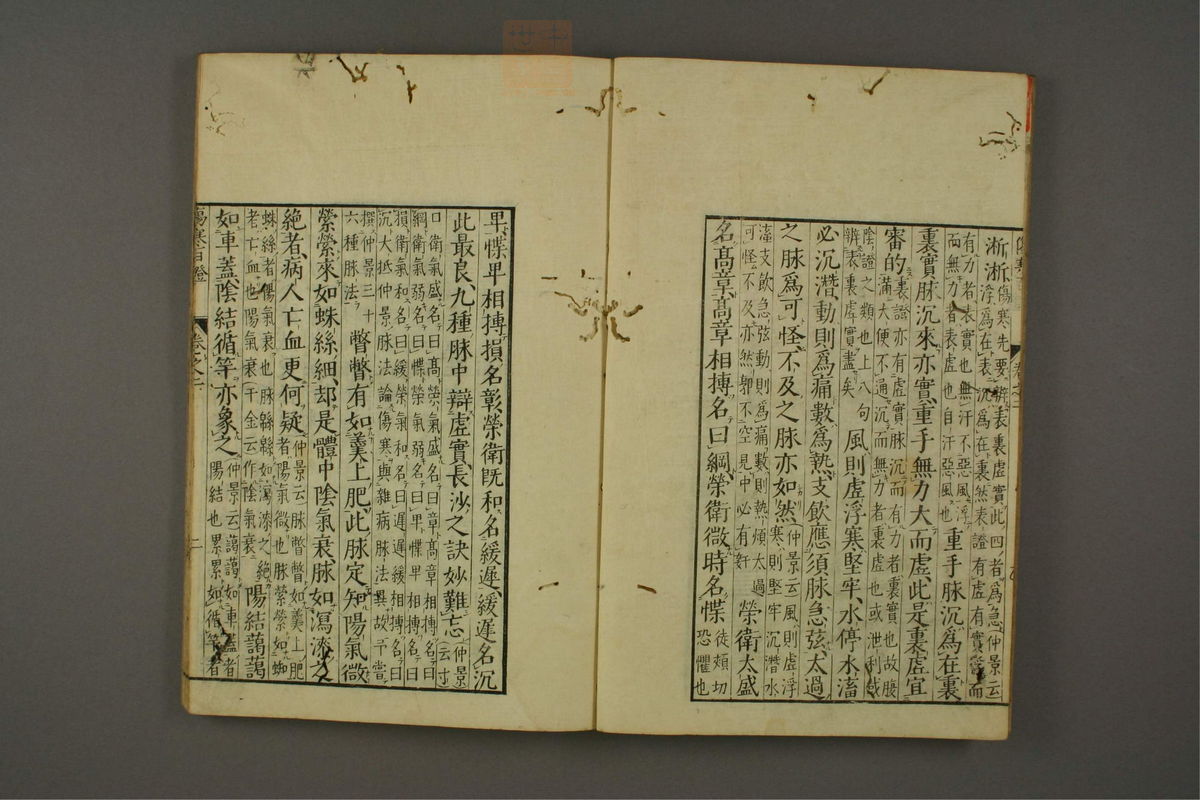 淅淅傷寒先要辨表裏虛實此四者爲急仲景云
浮爲在表沉爲在裏然表證有虛有實浮而
有力者表實也無汗不惡風浮
而無力者表虛也自汗惡風也重手脉沉爲在裏
裏實脉沉來亦實重手無力大而虛此是裏虛宜
審的裏證亦有虛實脉沉而有力者裏實也故腹
滿大便不通沉而無力者裏虛也或泄利或
陰證之類也上八句
辨表裏虛實盡矣風則虛浮寒堅牢水停水滀
必沉潛動則爲痛數爲熱支飲應須脉急弦太過
之脉爲可怪不及之脉亦如然仲景云風則虛浮
寒則堅牢沉潛水
滀支飲急弦動則爲痛數則熱煩太過
可怪不及亦然邪不空見中必有奸榮衛太盛
名髙章髙章相搏名曰綱榮衛微時名惵徒頰切
恐懼也
卑惵卑相搏損名彰榮衛旣和名緩遲緩遲名沉
此最良九種脉中辯虛實長沙之訣妙難忘仲景
云寸
口衛氣盛名曰髙榮氣盛名曰章髙章相搏名曰
綱衛氣弱名曰惵榮氣弱名曰卑惵卑相搏名曰
損衛氣和名曰緩榮氣和名曰遲遲緩相搏名曰
沉大抵仲景脉法論傷寒與雜病脉法異故予嘗
撰仲景三十
六種脉法瞥瞥有如羹上肥此脉定知陽氣微
縈縈來如蛛絲細却是體中陰氣衰脉如瀉漆之
絶者病人亡血更何疑仲景云脉瞥瞥如羹上肥
者陽氣微也脉縈縈如蜘
蛛絲者陽氣衰也脉緜緜如瀉漆之絶
老亡血也陽氣衰千金云作陰氣衰陽結藹藹
如車蓋陰結循竿亦象之仲景云藹藹如車蓋者
陽結也累累如循竿者
傷寒百證
卷之二